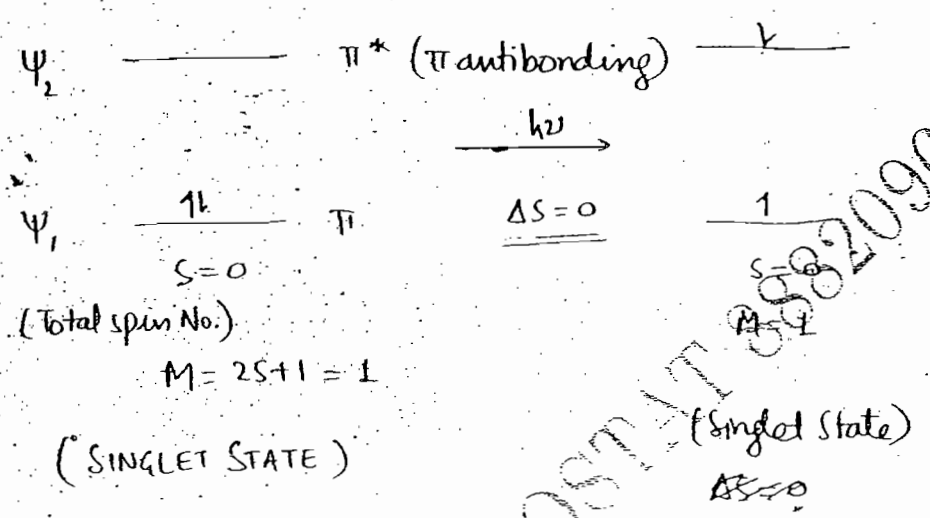 Ψ₂ π* (π antibonding) ⇂
hν
Ψ₁ ↿⇂ π ΔS = 0 ↿
S = 0 S = 0
(Total spin No.) M = 1
M = 2S+1 = 1
(Singlet State)
(SINGLET STATE)
ΔS = 0